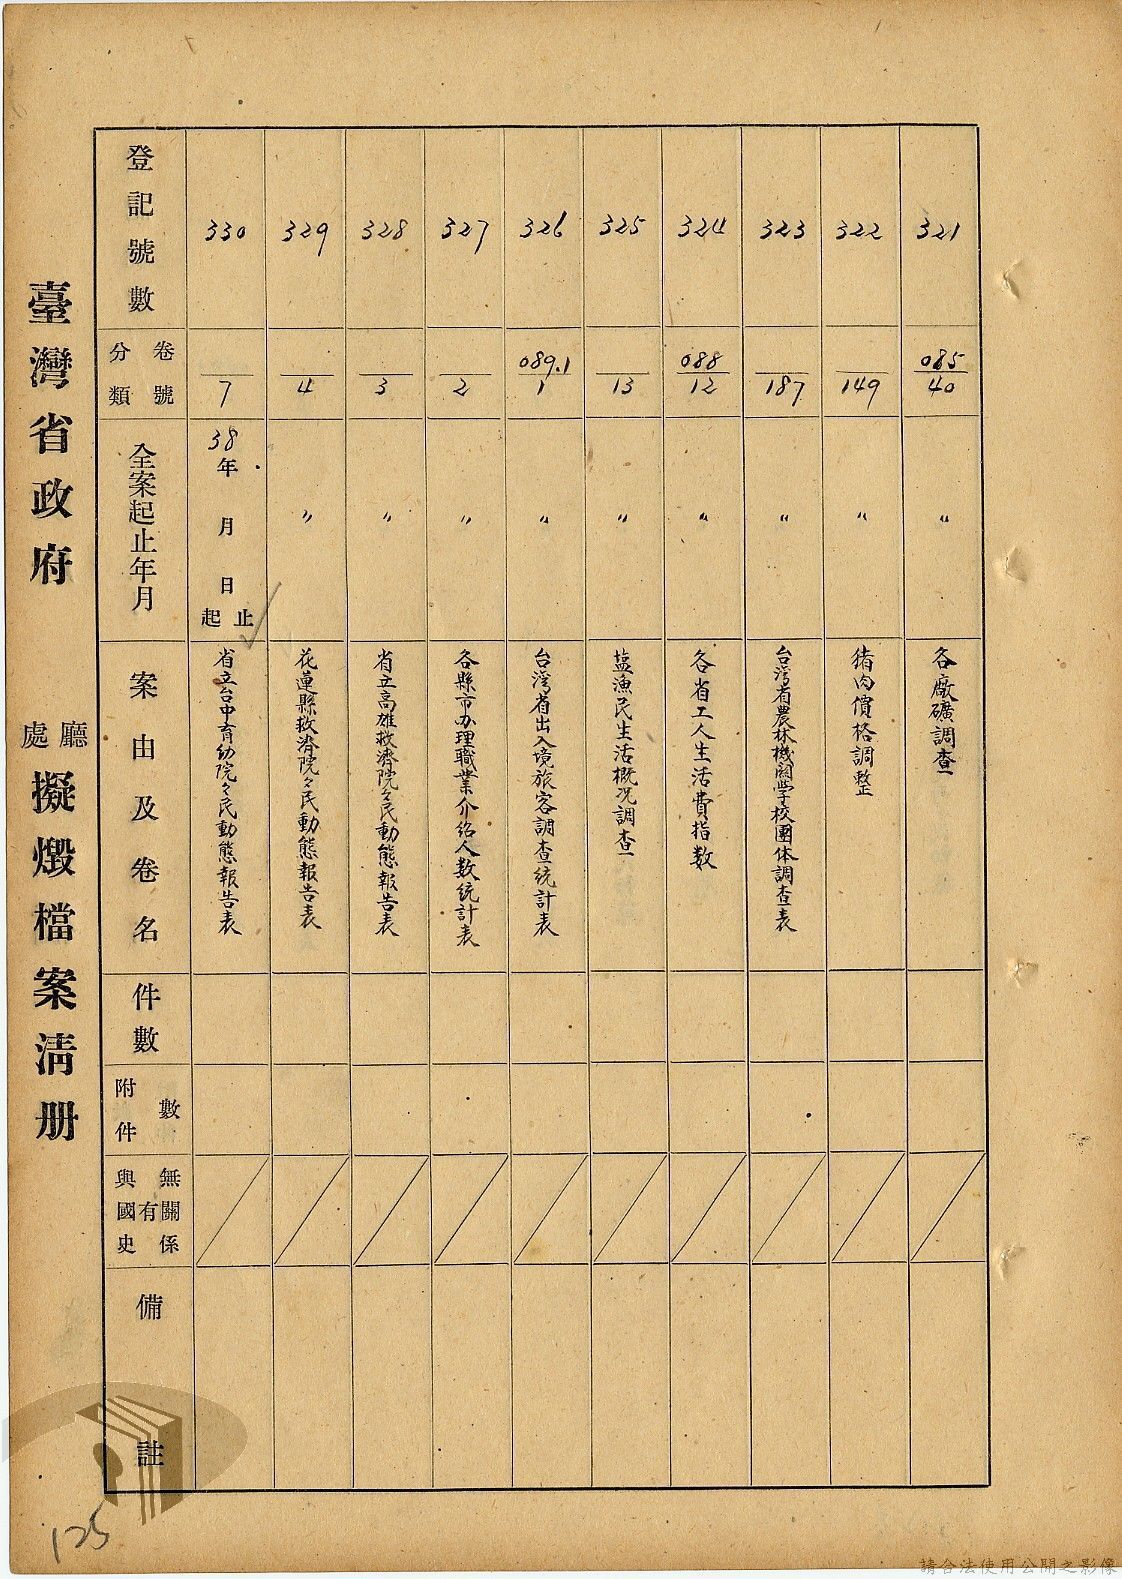 臺灣省政府
廳
處
擬燬檔案清册
登記號數
分類
卷號
全案起止年月
案由及卷名
件數
附件
數
與國史
有
無關係
備
註
330
7
38年
月
日
起
止
省立台中育幼院々民動態報告表
329
4
〃
花蓮縣救濟院々民動態報告表
328
3
〃
省立高雄救濟院々民動態報告表
327
2
〃
各縣市办理職業介紹人数統計表
326
089.1
1
〃
台灣省出入境旅客調查統計表
325
13
〃
盐漁民生活概况調查
324
088
12
〃
各省工人生活費指数
323
187
〃
台灣省農林機関学校團体調查表
322
149
〃
猪肉價格調整
321
085
40
〃
各廠礦調查
125
請合法使用公開之影像